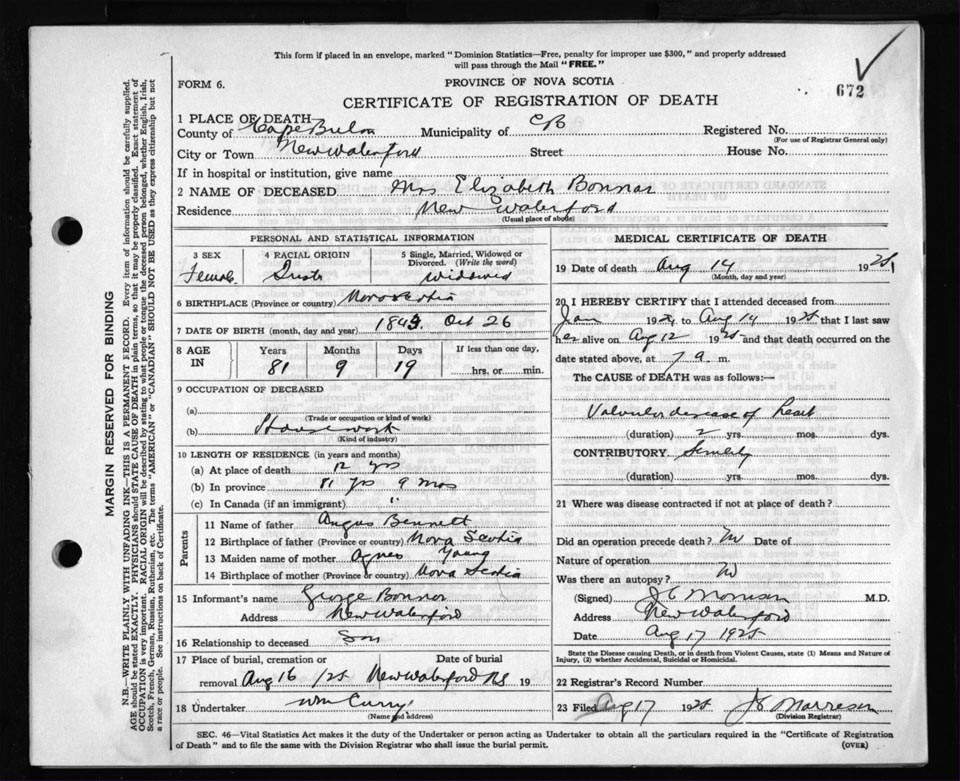 This form if placed in an envelope, marked "Dominion Statistics—Free, penalty for improper use $300," and properly addressed
will pass through the Mail "FREE."
672
FORM 6.
PROVINCE OF NOVA SCOTIA
CERTIFICATE OF REGISTRATION OF DEATH
1 PLACE OF DEATH
County of Cape Breton Municipality of CB Registered No.
(For use of Registrar General only)
City or Town New Waterford Street House No.
If in hospital or institution, give name
2 NAME OF DECEASED Mrs Elizabeth Bonnar
Residence New Waterford
(Usual place of abode)
PERSONAL AND STATISTICAL INFORMATION
3 SEX 4 RACIAL ORIGIN 5 Single, Married, Widowed or
Divorced. (Write the word)
Female widowed
6 BIRTHPLACE (Province or country) Nova Scotia
7 DATE OF BIRTH (month, day and year) 1843 Oct 26
8 AGE IN Years Months Days If less than one day,
81 9 19 hrs. or min.
9 OCCUPATION OF DECEASED
(a)
(Trade or occupation or kind of work)
(b) Housework
(Kind of industry)
10 LENGTH OF RESIDENCE (in years and months)
(a) At place of death 12 yrs
(b) In province 81 yrs 9 mos
(c) In Canada (if an immigrant) "
Parents
11 Name of father Angus Bennett
12 Birthplace of father (Province or country) Nova Scotia
13 Maiden name of mother Agnes Young
14 Birthplace of mother (Province or country) Nova Scotia
15 Informant's name George Bonnar
Address New Waterford
16 Relationship to deceased Son
17 Place of burial, cremation or Date of burial
removal Aug 16 /25 New Waterford NS 19
18 Undertaker Wm Curry
(Name and address)
MEDICAL CERTIFICATE OF DEATH
19 Date of death Aug 14 1925
(Month, day and year)
20 I HEREBY CERTIFY that I attended deceased from
Jan 192 to Aug 14 1925 that I last saw
her alive on Aug 12 1925 and that death occurred on the
date stated above, at 7 a. m.
The CAUSE of DEATH was as follows:—
Valvular disease of heart
(duration) 2 yrs. mos. dys.
CONTRIBUTORY Senility
(duration) yrs. mos. dys.
21 Where was disease contracted if not at place of death?
Did an operation precede death? No Date of
Nature of operation
Was there an autopsy? No
(Signed) M.D.
Address New Waterford
Date Aug 17 1925
State the Disease causing Death, or in death from Violent Causes, state (1) Means and Nature of
Injury, (2) whether Accidental, Suicidal or Homicidal.
22 Registrar's Record Number
23 Filed Aug 17 1925
(Division Registrar)
SEC. 46—Vital Statistics Act makes it the duty of the Undertaker or person acting as Undertaker to obtain all the particulars required in the "Certificate of Registration
of Death" and to file the same with the Division Registrar who shall issue the burial permit. (OVER)
MARGIN RESERVED FOR BINDING
N.B.—WRITE PLAINLY WITH UNFADING INK—THIS IS A PERMANENT RECORD. Every item of information should be carefully supplied.
AGE should be stated EXACTLY. PHYSICIANS should STATE CAUSE OF DEATH in plain terms, so that it may be properly classified. Exact statement of
OCCUPATION is very important. RACIAL ORIGIN will be described by stating to what people or tongue the deceased person belonged, whether English, Irish,
Scotch, French, German, Russian, Ruthenian, etc. The terms "AMERICAN" or "CANADIAN" SHOULD NOT BE USED as they express citizenship but not
a race or people. See instructions on back of Certificate.